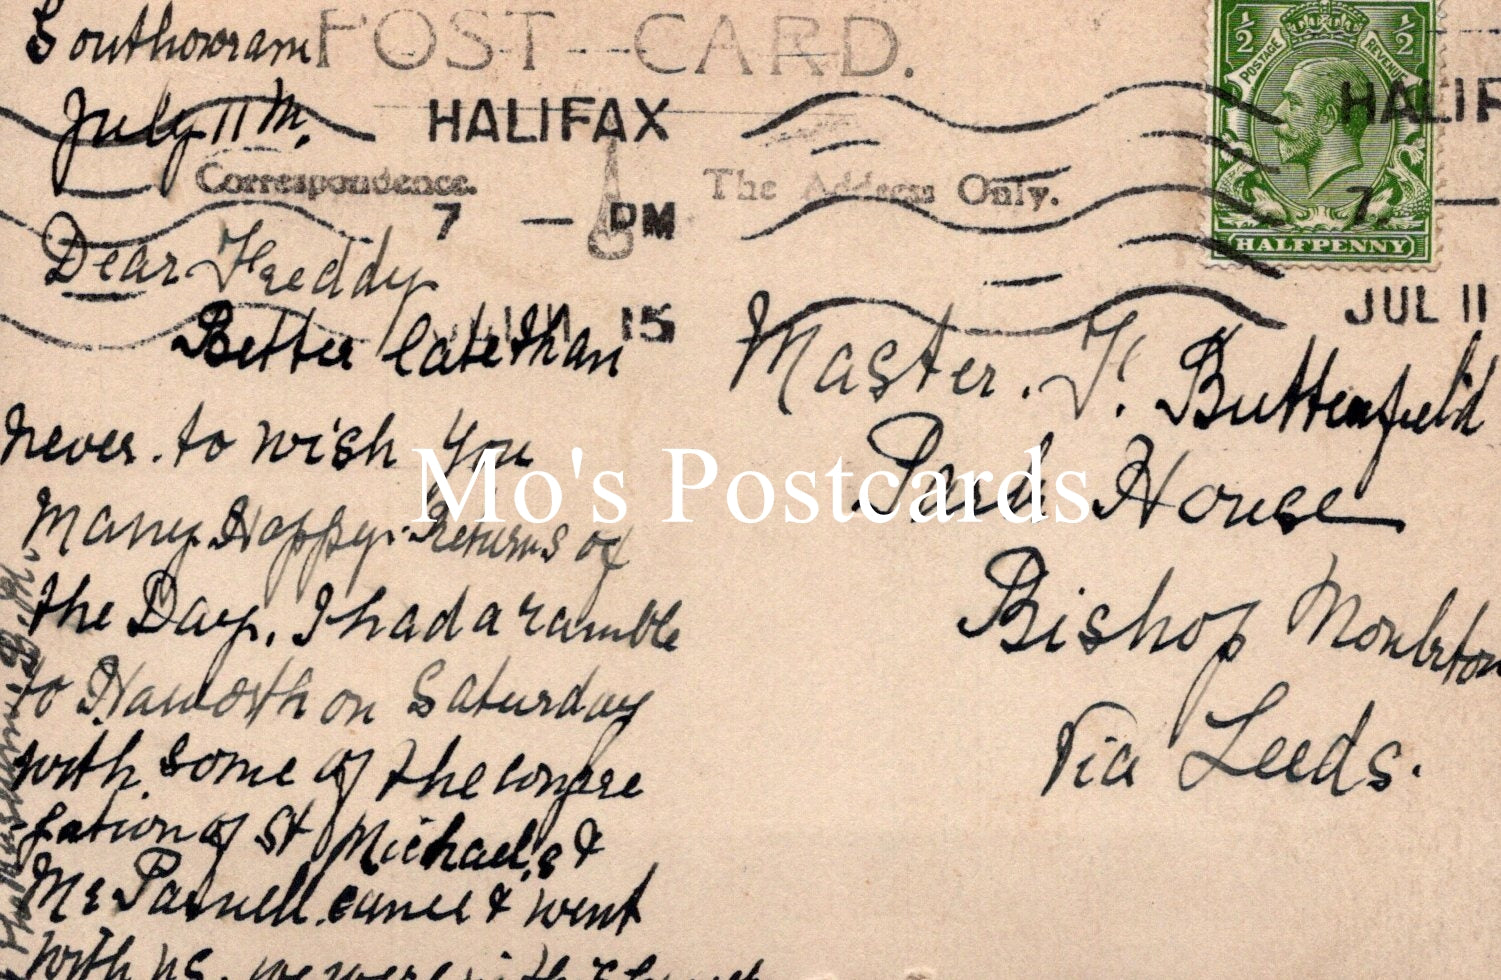 Southowram
July 11th.
POST CARD.
HALIFAX
7 — PM
15
Correspondence.
The Address Only.
½ ½
POSTAGE REVENUE
HALFPENNY
HALIF
7
JUL 11
Dear Freddy
Better late than
never. to wish you
Many Happy Returns of
the Day. I had a ramble
to Haworth on Saturday
with some of the congre
-gation of St Michael,s &
Mr Parnell came & went
with us. we were
Master. F. Butterfield
Park House
Bishop Monkton
Via Leeds.
Mo's Postcards